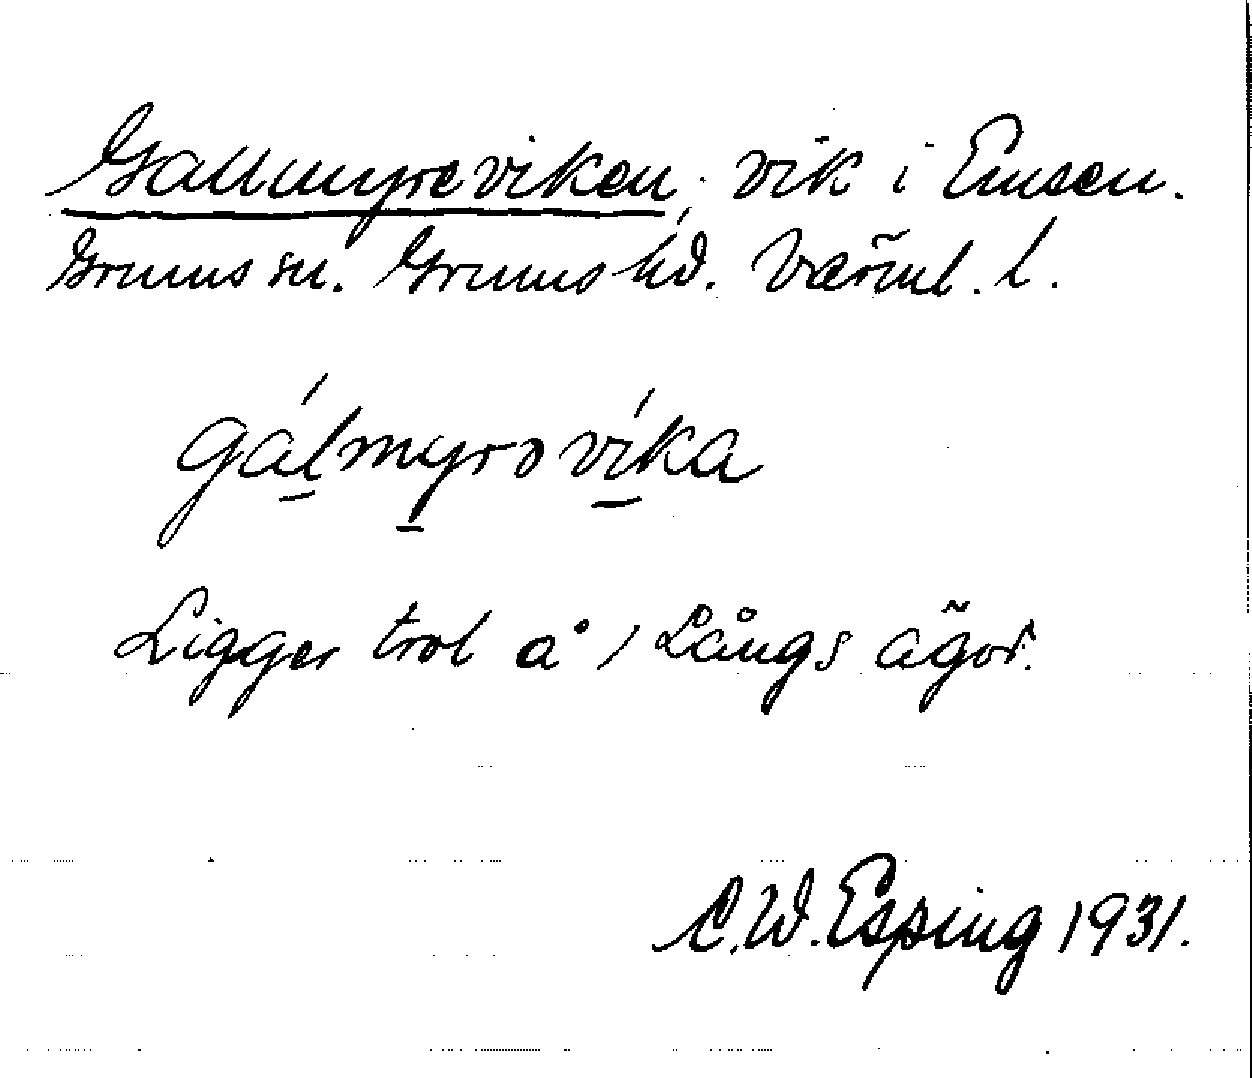 Gallmyreviken, vik i Emsen.
Grums sn. Grums hd. Värml. l.
gálmyrovíka
Ligger trol å 1 Långs ägor.
C.W. Esping 1931.